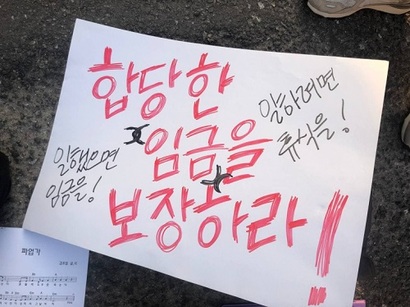 합당한
임금을
보장하라!
일했으면
임금을!
일하려면
휴식을!
파업가